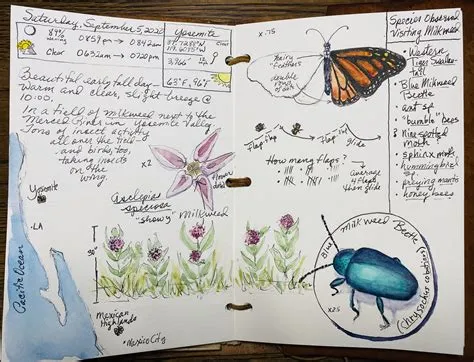 Saturday, September 5, 2020
89%
waning
0859pm → 0842am
Clear
0632am → 0720pm
Yosemite
3,966'
Clear
63°F, 96°F
Beautiful early fall day -
warm and clear, slight breeze @
10:00.
In a field of milkweed next to the
Merced River in Yosemite Valley.
Tons of insect activity
all over the field
and birds, too,
taking insects
on the
wing.
Yosemite
LA
Pacific Ocean
Mexican
Highlands
Mexico City
x2
flower
Asclepias
speciosa
"showy" Milkweed
36"
x.75
hairy
feathers
double
rows
Flap flap
Glide
Flap flap
Glide
How many flaps?
Average
4 flaps
then glide
Species Observed
Visiting Milkweed
• Western
Tiger Swallow-
tail
• Blue Milkweed
Beetle
• ant sp.
• "bumble" bees
• Nine-spotted
moth
• sphinx moth
• hummingbird
sp.
• praying mantis
• honey bees
Blue Milkweed Beetle
(Chrysochus cobaltinus)
x25